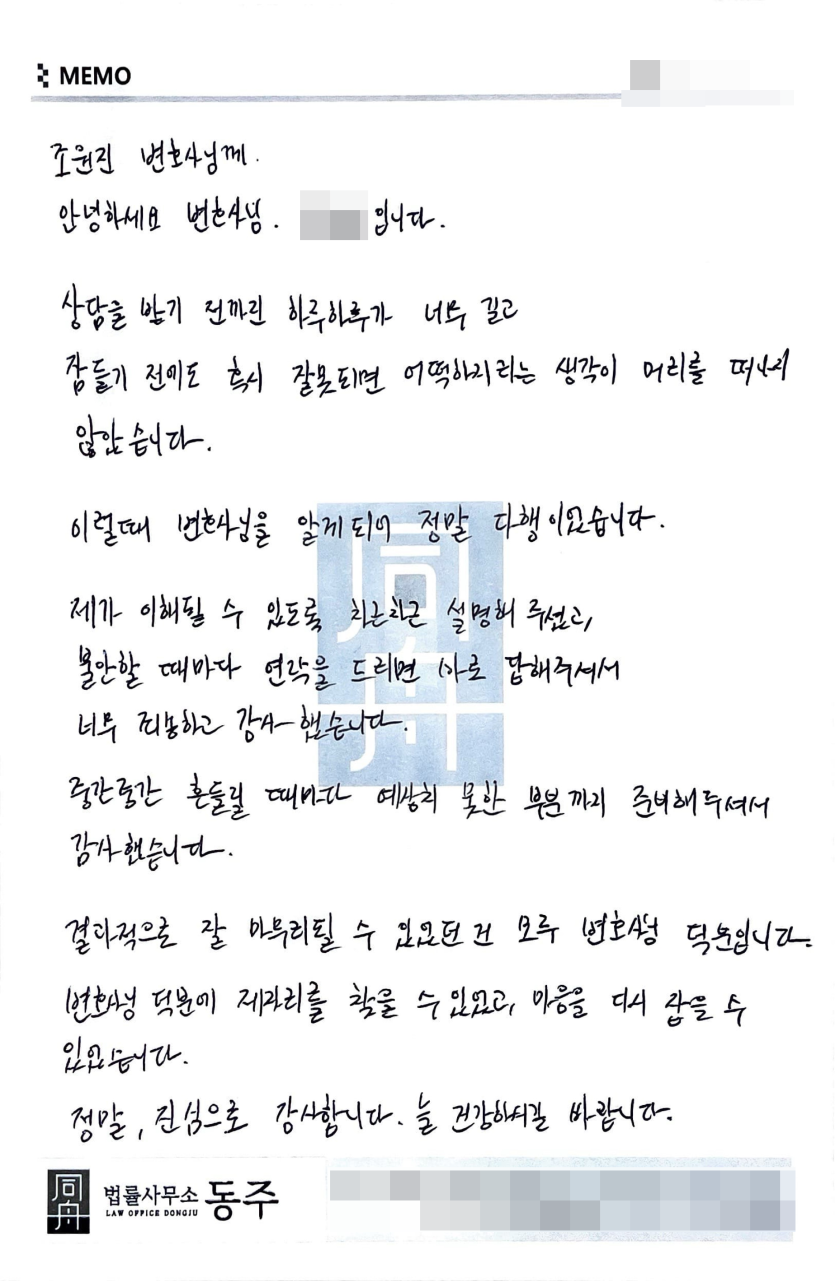 MEMO
조원진 변호사님께.
안녕하세요 변호사님. 입니다.
상담을 받기 전까진 하루하루가 너무 길고
잠들기 전에도 혹시 잘못되면 어떡하지라는 생각이 머리를 떠나지
않았습니다.
이럴때 변호사님을 알게되어 정말 다행이었습니다.
제가 이해될 수 있도록 차근차근 설명해 주셨고,
불안할 때마다 연락을 드리면 바로 답해주셔서
너무 죄송하고 감사했습니다.
중간중간 흔들릴 때마다 예상치 못한 부분까지 준비해주셔서
감사했습니다.
결과적으로 잘 마무리될 수 있었던 건 모두 변호사님 덕분입니다.
변호사님 덕분에 제자리를 찾을 수 있었고, 마음을 다시 잡을 수
있었습니다.
정말, 진심으로 감사합니다. 늘 건강하시길 바랍니다.
同舟
同舟 법률사무소 동주
LAW OFFICE DONGJU